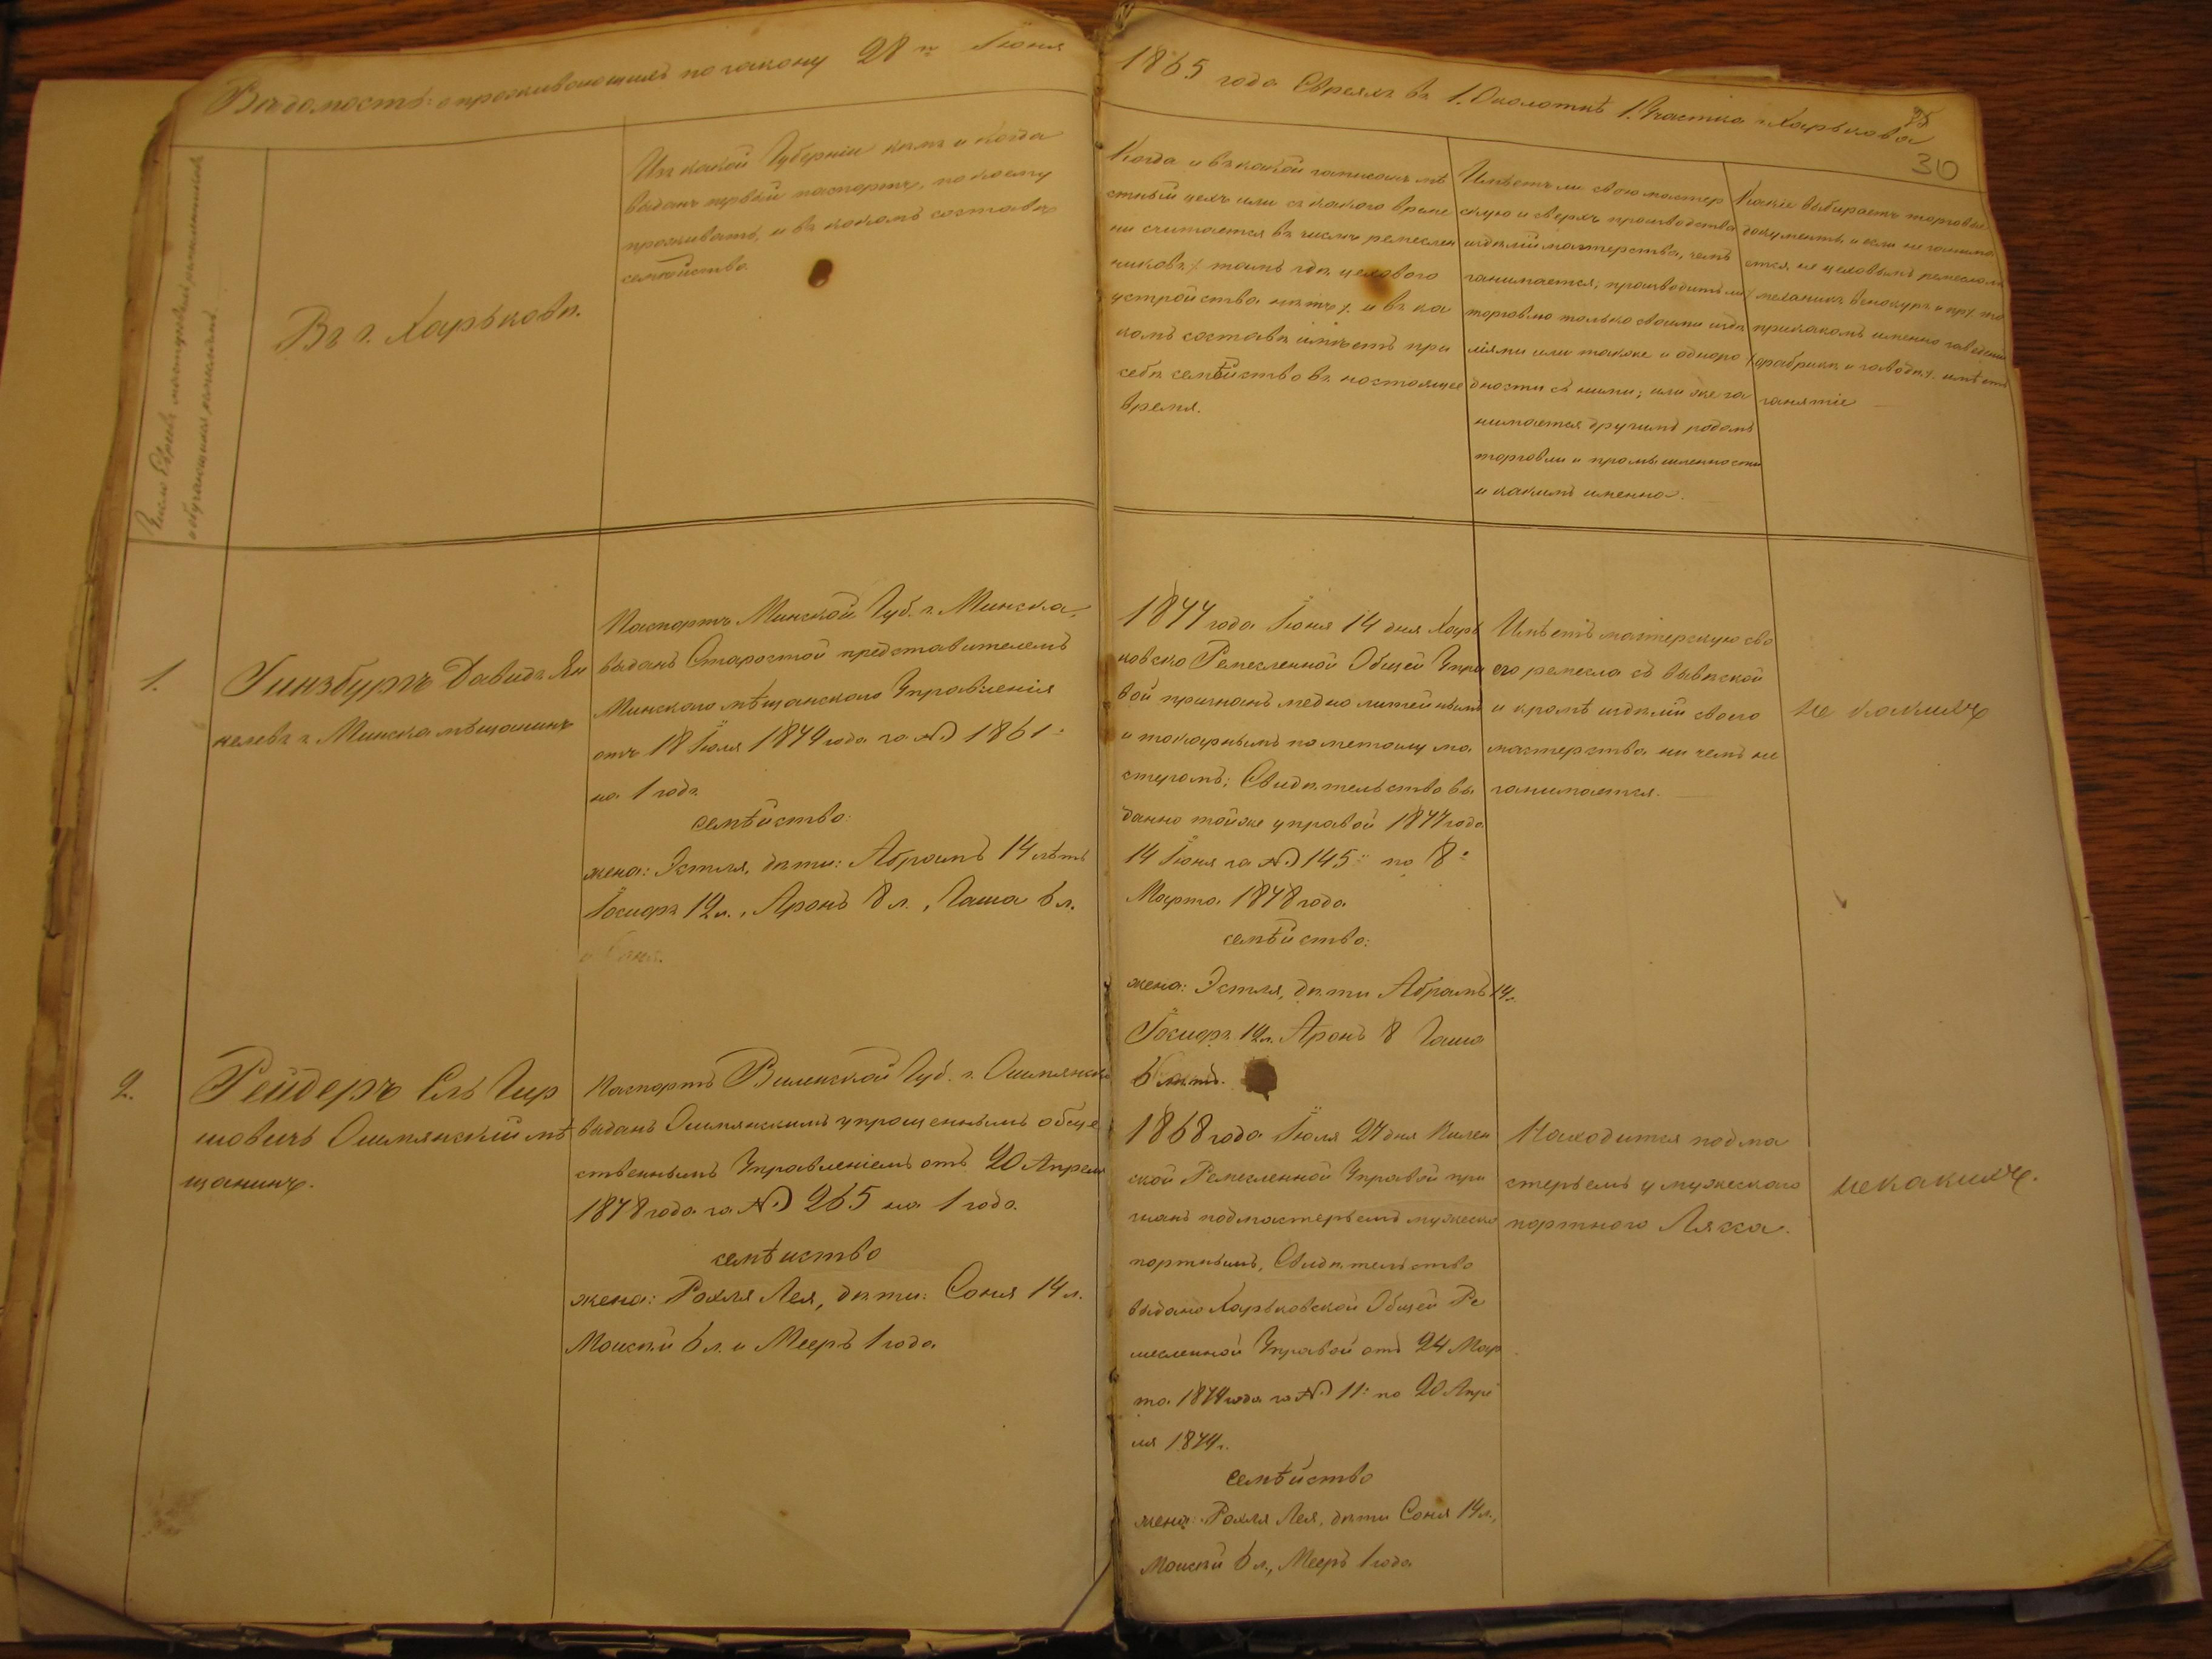 Ведомость: о проживающихъ по закону 28го Іюня
1865 года Евреяхъ въ 1. Околоткѣ 1. Участка г. Харькова
30
Число Евреевъ
Въ г. Харьковѣ.
Изъ какой Губерніи кѣмъ и когда
выданъ первый паспортъ, по коему
проживаетъ, и въ какомъ составѣ
семѣйство.
Когда и въ какой записанъ мѣ
стный цехъ или съ какого време
ни считается въ числѣ ремеслен
никовъ / тамъ гдѣ цеховаго
устройства нѣтъ / и въ ка
комъ составѣ имѣетъ при
себѣ семѣйство въ настоящее
время.
Имѣетъ ли свою мастер
скую и сверхъ производства
издѣлій мастерства, чемъ
занимается, производитъ ли
торговлю только своими издѣ
ліями или также и одноро
дности съ ними; или же за
нимается другимъ родомъ
торговли и промышленности
и какимъ именно.
Какіе выбираетъ торговые
документы и если не занима
ется не цеховымъ ремесломъ
/ механикъ винокуръ и пр / то
при какомъ именно заведеніи
/ фабрикѣ и заводѣ / имѣетъ
занятіе
1.
Гинзбургъ Давидъ Ян
келевъ г. Минска мѣщанинъ
Паспортъ Минской Губ. г. Минска,
выданъ Старостой представителемъ
Минскаго мѣщанскаго Управленія
отъ 18 Іюля 1879 года за № 1861:
на 1 годъ
семѣйство:
жена: Эстля, дѣти: Абрамъ 14 лѣтъ
Іосифъ 12 л., Аронъ 8 л., Гаша 6 л.
1877 года Іюня 14 дня Харь
ковско Ремесленной Общей Упра
вой признанъ медно литейнымъ
и токарнымъ по металу ма
стеромъ; Свидѣтельство вы
данно тойже управой 1877 года
14 Іюня за № 145: по 8:
Марта 1878 года
семѣйство:
жена: Эстля, дѣти Абрамъ 14.
Іосифъ 12 л. Аронъ 8 Гаша
6 лѣтъ.
Имѣетъ мастерскую сво
его ремесла съ вывѣской
и кромѣ издѣлій своего
мастерства ни чемъ не
занимается.
не какихъ
2.
Рейдеръ Ель Гир
шовичъ Ошмянскій мѣ
щанинъ.
Паспортъ Виленской Губ. г. Ошмянск
выданъ Ошмянскимъ упрощеннымъ обще
ственнымъ Управленіемъ отъ 20 Апреля
1878 года за № 265 на 1 годъ.
семѣйство
жена: Рохля Лея, дѣти: Соня 14 л.
Моисѣй 6 л. и Мееръ 1 года.
1868 года Іюля 27 дня Вилен
ской Ремесленной Управой при
знанъ подмастерьемъ мужеско
портнымъ, Свидѣтельство
выдано Харьковской Общей Ре
месленной Управой отъ 24 Мар
та 1879 года за № 11: по 20 Апрѣ
ля 1879 г.
семѣйство
жена: Рохля Лея, дѣти Соня 14 л.,
Моисѣй 6 л., Мееръ 1 года
Находится подма
стерьемъ у мужескаго
портнаго Ляхса.
некакихъ.